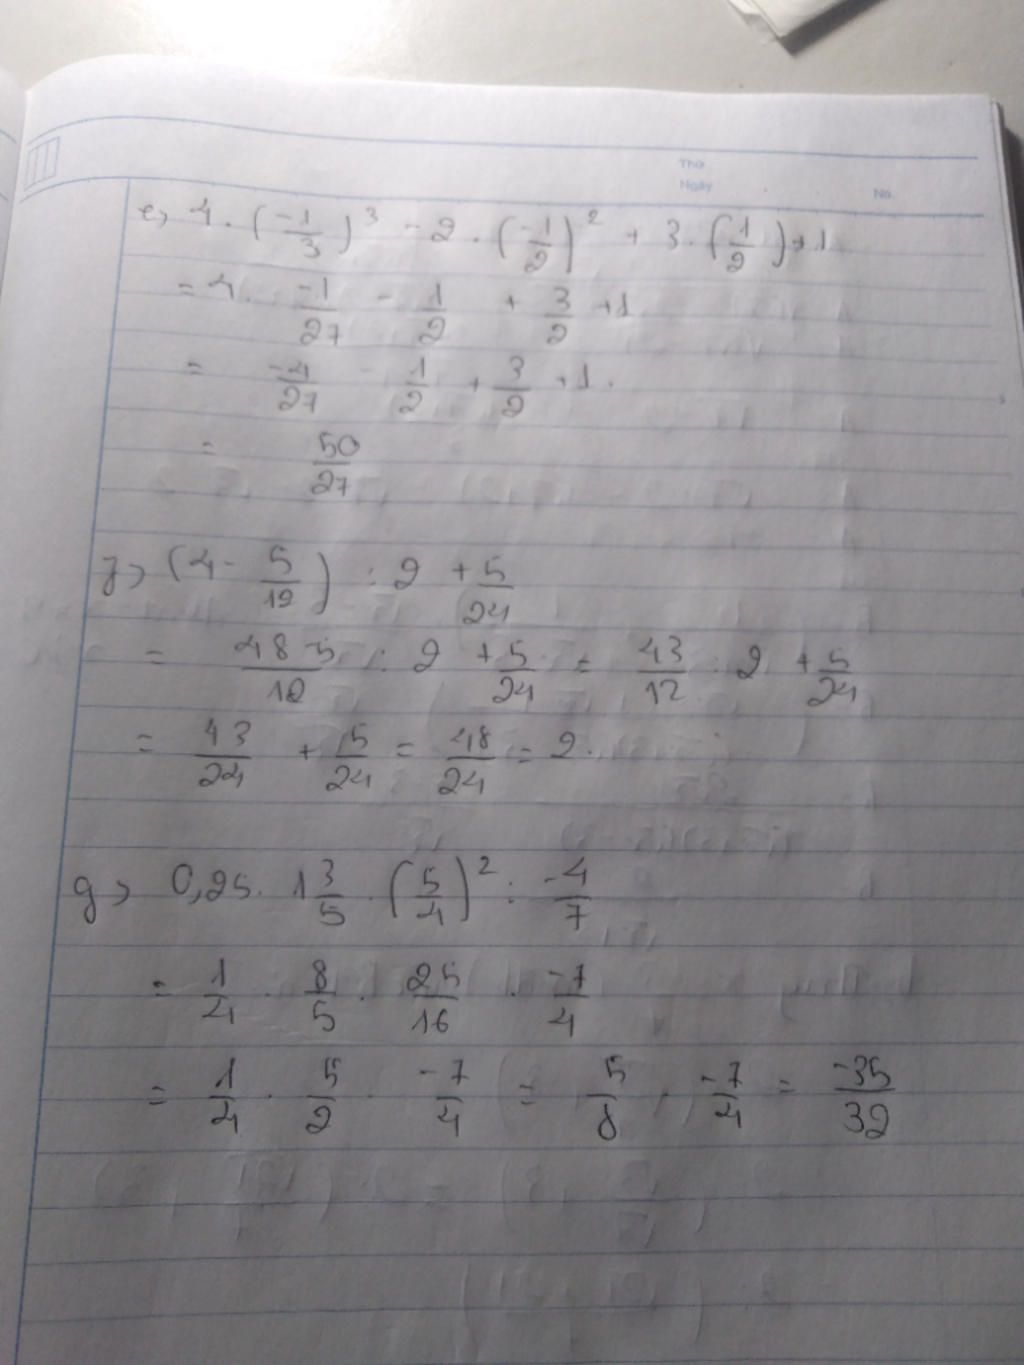 Thứ
Ngày
No.
e, 4 . (-1/3)^3 - 2 . (-1/2)^2 + 3 . (1/2) + 1
= 4 . -1/27 - 1/2 + 3/2 + 1
= -4/27 - 1/2 + 3/2 + 1 .
= 50/27
f, (4 - 5/12) : 2 + 5/24
= 48-5/12 : 2 + 5/24 = 43/12 : 2 + 5/24
= 43/24 + 5/24 = 48/24 = 2 .
g, 0,25 . 1 3/5 . (5/4)^2 : -4/7
= 1/4 . 8/5 . 25/16 . -7/4
= 1/4 . 5/2 . -7/4 = 5/8 . -7/4 = -35/32